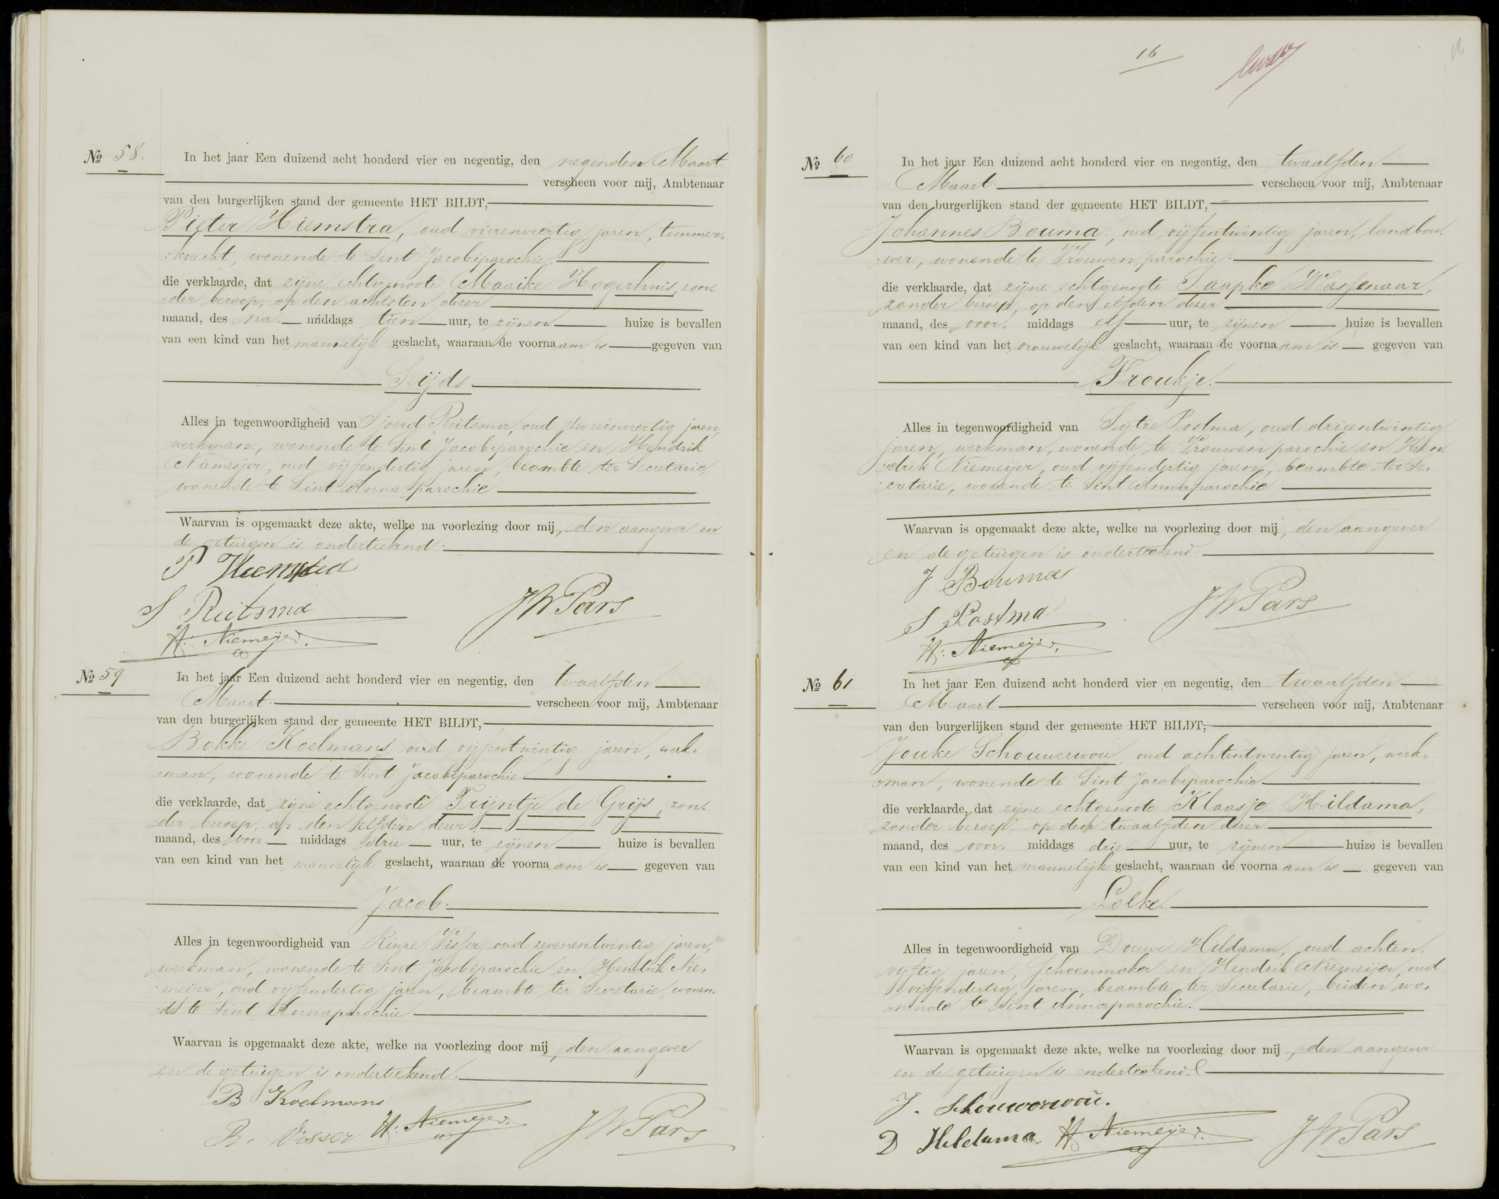 № 58.
In het jaar Een duizend acht honderd vier en negentig, den negenden Maart
verscheen voor mij, Ambtenaar
van den burgerlijken stand der gemeente HET BILDT,
Pieter Hiemstra, oud vierenveertig jaren, timmer-
knecht, wonende te Sint Jacobiparochie
die verklaarde, dat zijne echtgenoote Maaike Hogerhuis, zon-
der beroep, op den achtsten dezer
maand, des na middags tien uur, te zijnen huize is bevallen
van een kind van het mannelijk geslacht, waaraan de voornaam is gegeven van
Sijds
Alles in tegenwoordigheid van Sjoerd Ruitsma, oud jaren,
werkman, wonende te Sint Jacobiparochie en Hendrik
Niemeijer, oud vijfendertig jaren, beambte ter Secretarie
wonende te Sint Annaparochie
Waarvan is opgemaakt deze akte, welke na voorlezing door mij, den aangever en
de getuigen is onderteekend.
P Hiemstra
S Ruitsma
JW Pars
H. Niemeijer.
№ 59
In het jaar Een duizend acht honderd vier en negentig, den twaalfden
Maart verscheen voor mij, Ambtenaar
van den burgerlijken stand der gemeente HET BILDT,
Bokke Koelmans oud vijfentwintig jaren, werk-
man, wonende te Sint Jacobiparochie
die verklaarde, dat zijne echtgenoote Trijntje de Grijs, zon-
der beroep, op den elfden dezer
maand, des voor middags drie uur, te zijnen huize is bevallen
van een kind van het mannelijk geslacht, waaraan de voornaam is gegeven van
Jacob.
Alles in tegenwoordigheid van Visser oud zevenentwintig jaren,
werkman, wonende te Sint Jacobiparochie en Hendrik Nie-
meijer, oud vijfendertig jaren, beambte ter Secretarie, wonen-
de te Sint Annaparochie.
Waarvan is opgemaakt deze akte, welke na voorlezing door mij, den aangever
en de getuigen is onderteekend.
B Koelmans
R. Visser H. Niemeijer. JW Pars
16
№ 60
In het jaar Een duizend acht honderd vier en negentig, den twaalfden
Maart verscheen voor mij, Ambtenaar
van den burgerlijken stand der gemeente HET BILDT,
Johannes Bouma, oud vijfentwintig jaren, landbou-
wer, wonende te Vrouwenparochie.
die verklaarde, dat zijne echtgenoote Taapke Wassenaar,
zonder beroep, op den elfden dezer
maand, des voor middags elf uur, te zijnen huize is bevallen
van een kind van het vrouwelijk geslacht, waaraan de voornaam is gegeven van
Froukje.
Alles in tegenwoordigheid van Sytze Postma, oud drieentwintig
jaren, werkman, wonende te Vrouwenparochie en Hen
drik Niemeijer, oud vijfendertig jaren, beambte ter Se-
cretarie, wonende te Sint Annaparochie
Waarvan is opgemaakt deze akte, welke na voorlezing door mij, den aangever
en de getuigen is onderteekend
J Bouma
S Postma
JW Pars
H. Niemeijer.
№ 61
In het jaar Een duizend acht honderd vier en negentig, den twaalfden
Maart verscheen voor mij, Ambtenaar
van den burgerlijken stand der gemeente HET BILDT,
Jouke Schouwerwou, oud achtentwintig jaren, werk-
man, wonende te Sint Jacobiparochie
die verklaarde, dat zijne echtgenoote Klaasje Hildama,
zonder beroep, op den twaalfden dezer
maand, des voor middags drie uur, te zijnen huize is bevallen
van een kind van het mannelijk geslacht, waaraan de voornaam is gegeven van
Lolke
Alles in tegenwoordigheid van Douwe Hildama, oud achten-
vijftig jaren, schoenmaker en Hendrik Niemeijer, oud
vijfendertig jaren, beambte ter Secretarie, beiden wo-
nende te Sint Annaparochie.
Waarvan is opgemaakt deze akte, welke na voorlezing door mij, den aangever
en de getuigen is onderteekend.
J. Schouwerwou.
D Hildama H. Niemeijer. JW Pars